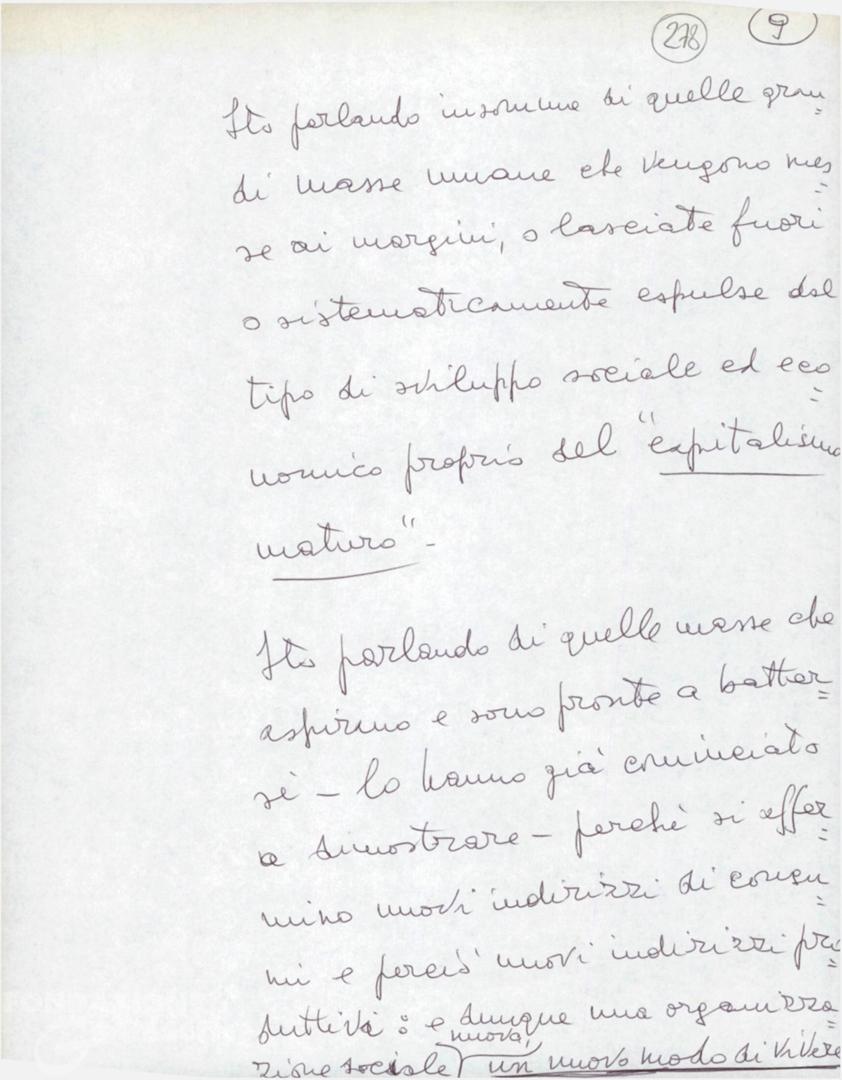 278 9
Sto parlando insomma di quelle gran=
di masse umane che vengono mes=
se ai margini, o lasciate fuori
o sistematicamente espulse dal
tipo di sviluppo sociale ed eco=
nomico proprio del "capitalismo
maturo"-
Sto parlando di quelle masse che
aspirano e sono pronte a batter=
si – lo hanno già cominciato
a dimostrare – perchè si affer=
mino nuovi indirizzi di consu=
mi e perciò nuovi indirizzi pro=
duttivi : e dunque una organizza=
nuova,
zione sociale un nuovo modo di vivere
FONDAZIONE